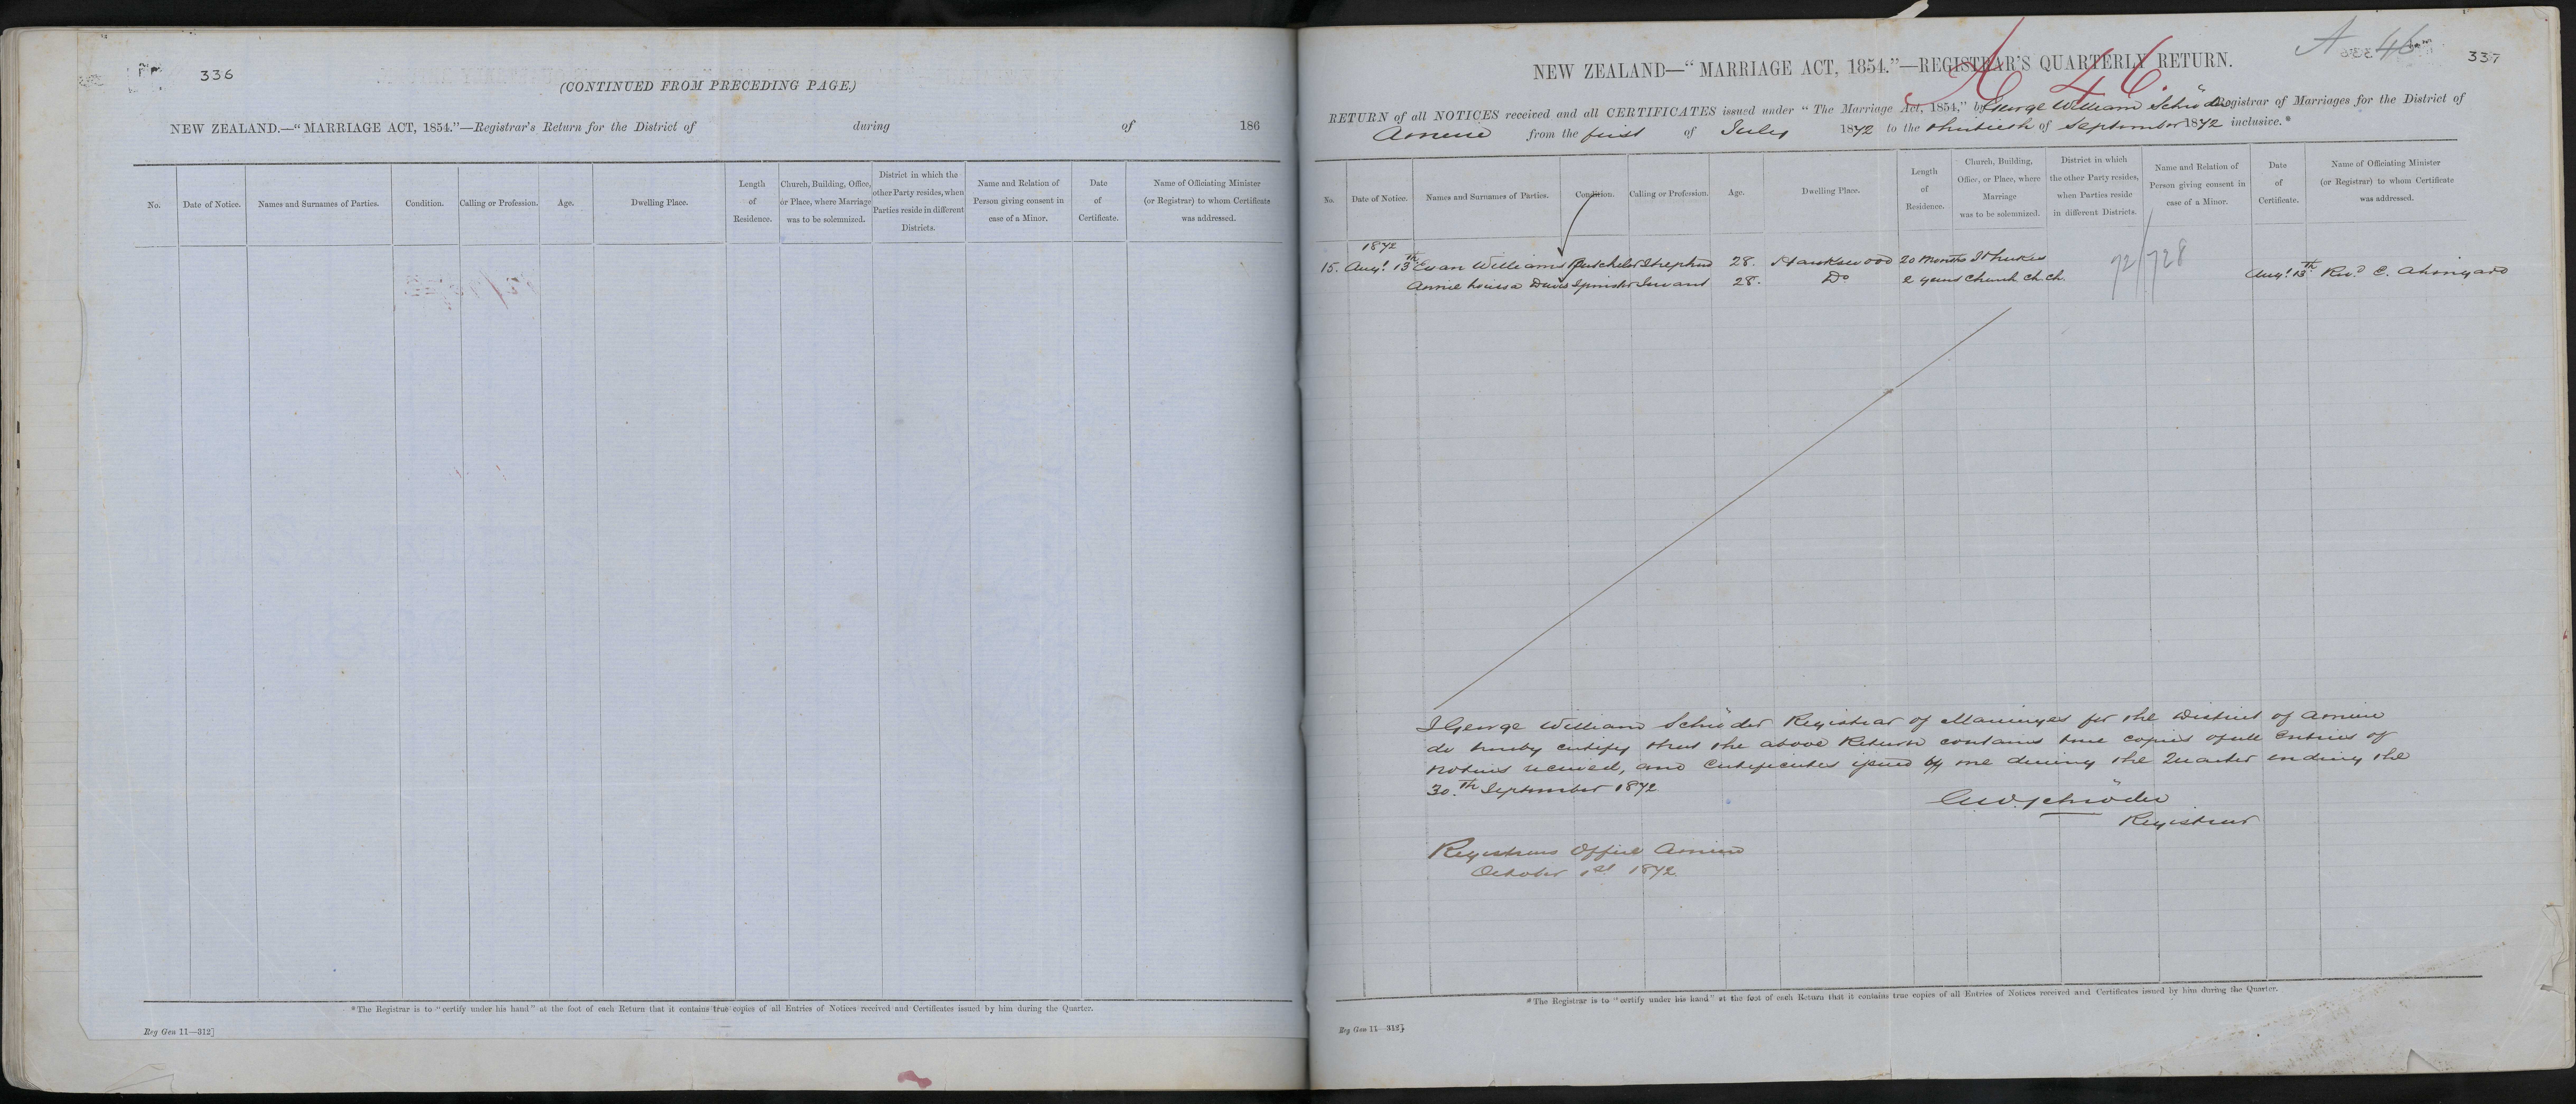 336
(CONTINUED FROM PRECEDING PAGE.)
NEW ZEALAND.—"MARRIAGE ACT, 1854."—Registrar's Return for the District of during of 186
No.
Date of Notice.
Names and Surnames of Parties.
Condition.
Calling or Profession.
Age.
Dwelling Place.
Length
of
Residence.
Church, Building, Office,
or Place, where Marriage
was to be solemnized.
District in which the
other Party resides, when
Parties reside in different
Districts.
Name and Relation of
Person giving consent in
case of a Minor.
Date
of
Certificate.
Name of Officiating Minister
(or Registrar) to whom Certificate
was addressed.
*The Registrar is to "certify under his hand" at the foot of each Return that it contains true copies of all Entries of Notices received and Certificates issued by him during the Quarter.
Reg Gen 11—312]
A 46
337
A 46.
NEW ZEALAND—"MARRIAGE ACT, 1854."—REGISTRAR'S QUARTERLY RETURN.
RETURN of all NOTICES received and all CERTIFICATES issued under "The Marriage Act, 1854," by George William Schröder Registrar of Marriages for the District of
from the first of July 1872 to the thirtieth of September 1872 inclusive.*
No.
Date of Notice.
Names and Surnames of Parties.
Condition.
Calling or Profession.
Age.
Dwelling Place.
Length
of
Residence.
Church, Building,
Office, or Place, where
Marriage
was to be solemnized.
District in which
the other Party resides,
when Parties reside
in different Districts.
Name and Relation of
Person giving consent in
case of a Minor.
Date
of
Certificate.
Name of Officiating Minister
(or Registrar) to whom Certificate
was addressed.
1872
15. Augt. 13th Evan Williams Batchelor Shepherd 28. Hawkswood 20 Months St Lukes 72/728
Annie Louisa Davis Spinster Servant 28. Do 2 years Church Ch.Ch. Augt. 13th Revd C.
I George William Schröder Registrar of Marriages for the District of
do hereby certify that the above Return contains true copies of all Entries of
Notices received, and Certificates issued by me during the Quarter ending the
30.th September 1872
G.W. Schröder
Registrar
Registrars Office
October 1st 1872
*The Registrar is to "certify under his hand" at the foot of each Return that it contains true copies of all Entries of Notices received and Certificates issued by him during the Quarter.
Reg Gen 11—312]